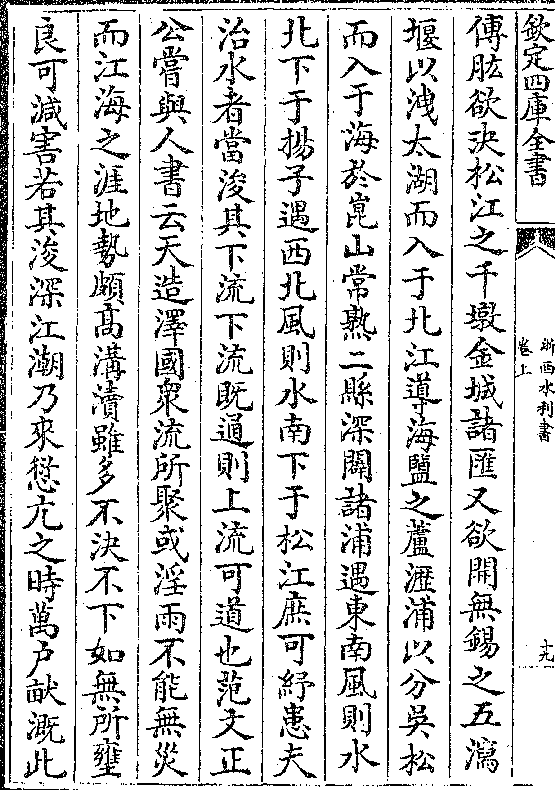 欽定四庫全書
浙西水利書
卷上
十九
傅肱欲決松江之千墩金城諸匯又欲開無錫之五瀉
堰以洩太湖而入于北江導海鹽之蘆瀝浦以分吳松
而入于海於崑山常熟二縣深闢諸浦遇東南風則水
北下于揚子遇西北風則水南下于松江庶可紓患夫
治水者當浚其下流下流既通則上流可道也范文正
公嘗與人書云天造澤國衆流所聚或淫雨不能無災
而江海之涯地勢頗高溝瀆雖多不決不下如無所壅
良可減害若其浚深江潮乃來愆亢之時萬戸畎溉此